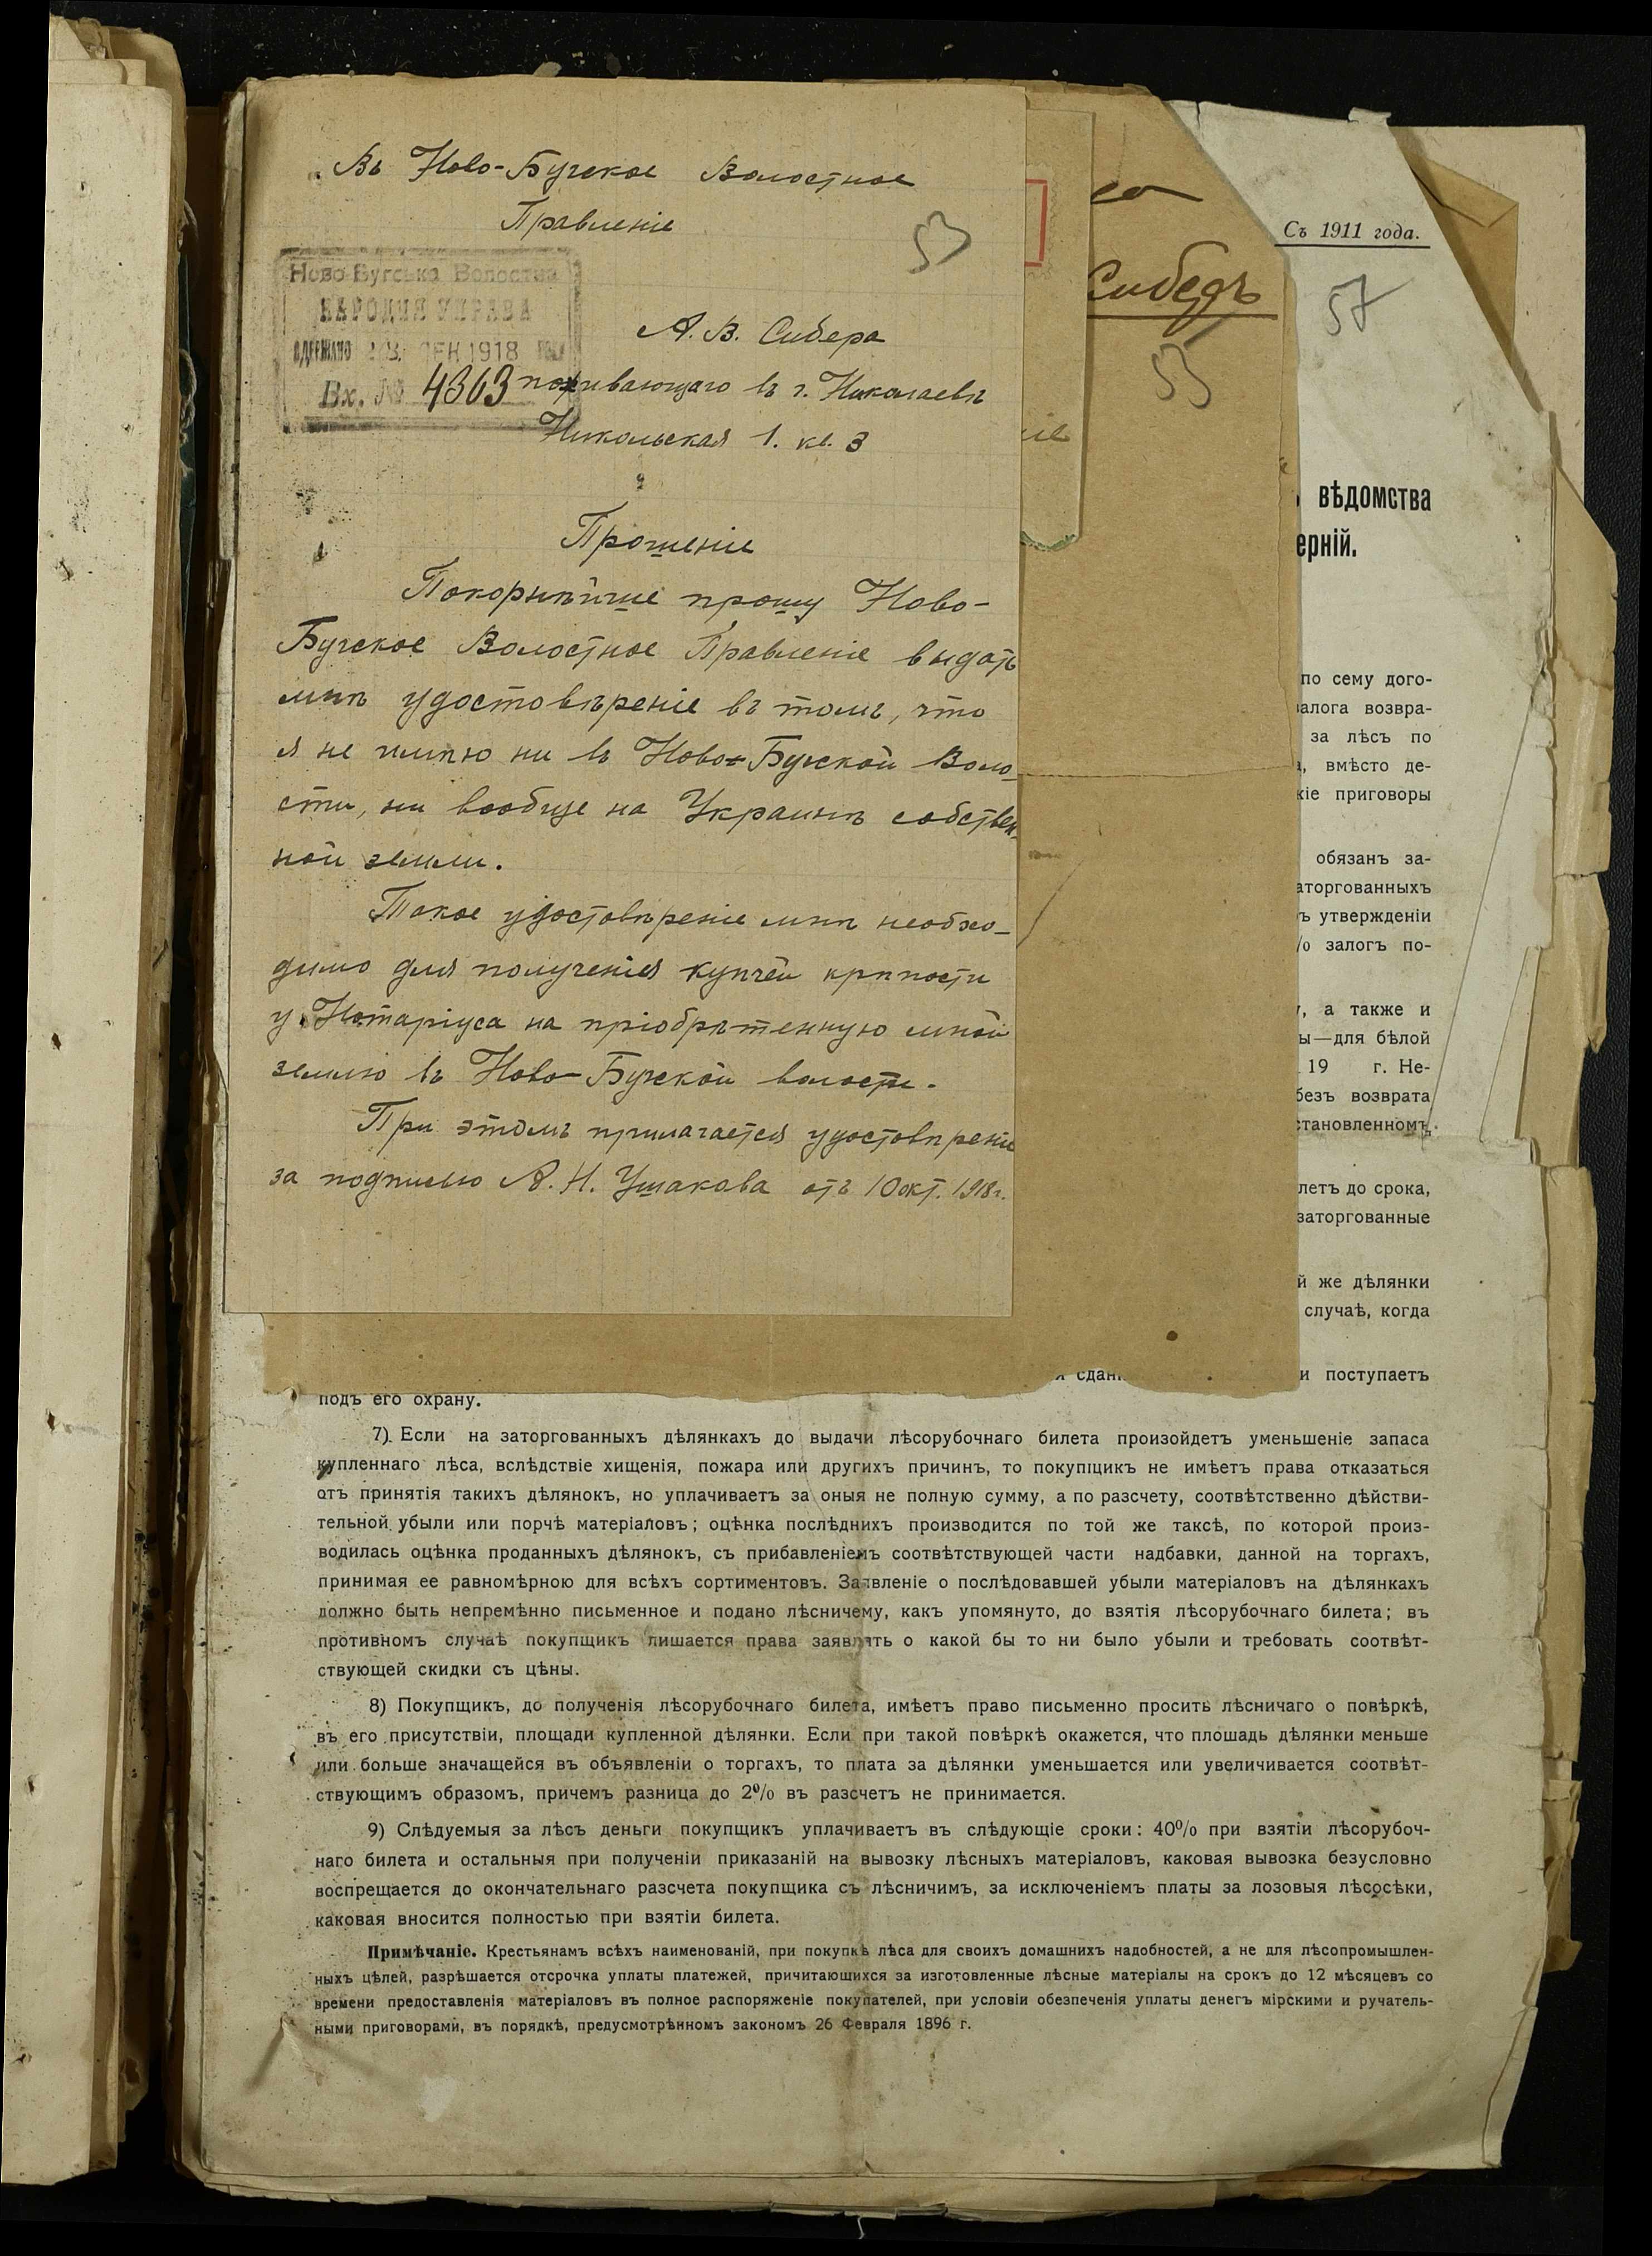 Въ Ново-Бугское Волостное
Правленіе
53
Ново Бугська Волостна
НАРОДНЯ УПРАВА
ОДЕРЖАНО 1918
Вх. № 4363
А. В. Сибера
поживающаго въ г. Николаевѣ
Никольская 1. кв. 3
Прошеніе
Покорнѣйше прошу Ново-
Бугское Волостное Правленіе выдать
мнѣ удостовѣреніе въ томъ, что
я не имѣю ни въ Ново-Бугской Воло-
сти, ни вообще на Украинѣ собствен-
ной земли.
Такое удостовѣреніе мнѣ необхо-
димо для полученія купчей крѣпости
у Нотаріуса на пріобрѣтенную мной
землю въ Ново-Бугской волости.
При этомъ прилагается удостовѣреніе
за подписью А. Н. Ушакова отъ 10 окт. 1918 г.
55
Съ 1911 года.
57
вѣдомства
ерній.
по сему дого-
алога возвра-
за лѣсъ по
вмѣсто де-
кіе приговоры
обязанъ за-
аторгованныхъ
ъ утвержденіи
% залогъ по-
, а также и
ы—для бѣлой
19 г. Не-
безъ возврата
становленномъ
летъ до срока,
заторгованные
й же дѣлянки
случаѣ, когда
я сдан и поступаетъ
подъ его охрану.
7) Если на заторгованныхъ дѣлянкахъ до выдачи лѣсорубочнаго билета произойдетъ уменьшеніе запаса
купленнаго лѣса, вслѣдствіе хищенія, пожара или другихъ причинъ, то покупщикъ не имѣетъ права отказаться
отъ принятія такихъ дѣлянокъ, но уплачиваетъ за оныя не полную сумму, а по разсчету, соотвѣтственно дѣйстви-
тельной убыли или порчѣ матеріаловъ; оцѣнка послѣднихъ производится по той же таксѣ, по которой произ-
водилась оцѣнка проданныхъ дѣлянокъ, съ прибавленіемъ соотвѣтствующей части надбавки, данной на торгахъ,
принимая ее равномѣрною для всѣхъ сортиментовъ. Заявленіе о послѣдовавшей убыли матеріаловъ на дѣлянкахъ
должно быть непремѣнно письменное и подано лѣсничему, какъ упомянуто, до взятія лѣсорубочнаго билета; въ
противномъ случаѣ покупщикъ лишается права заявлять о какой бы то ни было убыли и требовать соотвѣт-
ствующей скидки съ цѣны.
8) Покупщикъ, до полученія лѣсорубочнаго билета, имѣетъ право письменно просить лѣсничаго о повѣркѣ,
въ его присутствіи, площади купленной дѣлянки. Если при такой повѣркѣ окажется, что площадь дѣлянки меньше
или больше значащейся въ объявленіи о торгахъ, то плата за дѣлянки уменьшается или увеличивается соотвѣт-
ствующимъ образомъ, причемъ разница до 2% въ разсчетъ не принимается.
9) Слѣдуемыя за лѣсъ деньги покупщикъ уплачиваетъ въ слѣдующіе сроки: 40% при взятіи лѣсорубоч-
наго билета и остальныя при полученіи приказаній на вывозку лѣсныхъ матеріаловъ, каковая вывозка безусловно
воспрещается до окончательнаго разсчета покупщика съ лѣсничимъ, за исключеніемъ платы за лозовыя лѣсосѣки,
каковая вносится полностью при взятіи билета.
Примѣчаніе. Крестьянамъ всѣхъ наименованій, при покупкѣ лѣса для своихъ домашнихъ надобностей, а не для лѣсопромышлен-
ныхъ цѣлей, разрѣшается отсрочка уплаты платежей, причитающихся за изготовленные лѣсные матеріалы на срокъ до 12 мѣсяцевъ со
времени предоставленія матеріаловъ въ полное распоряженіе покупателей, при условіи обезпеченія уплаты денегъ мірскими и ручатель-
ными приговорами, въ порядкѣ, предусмотрѣнномъ закономъ 26 Февраля 1896 г.